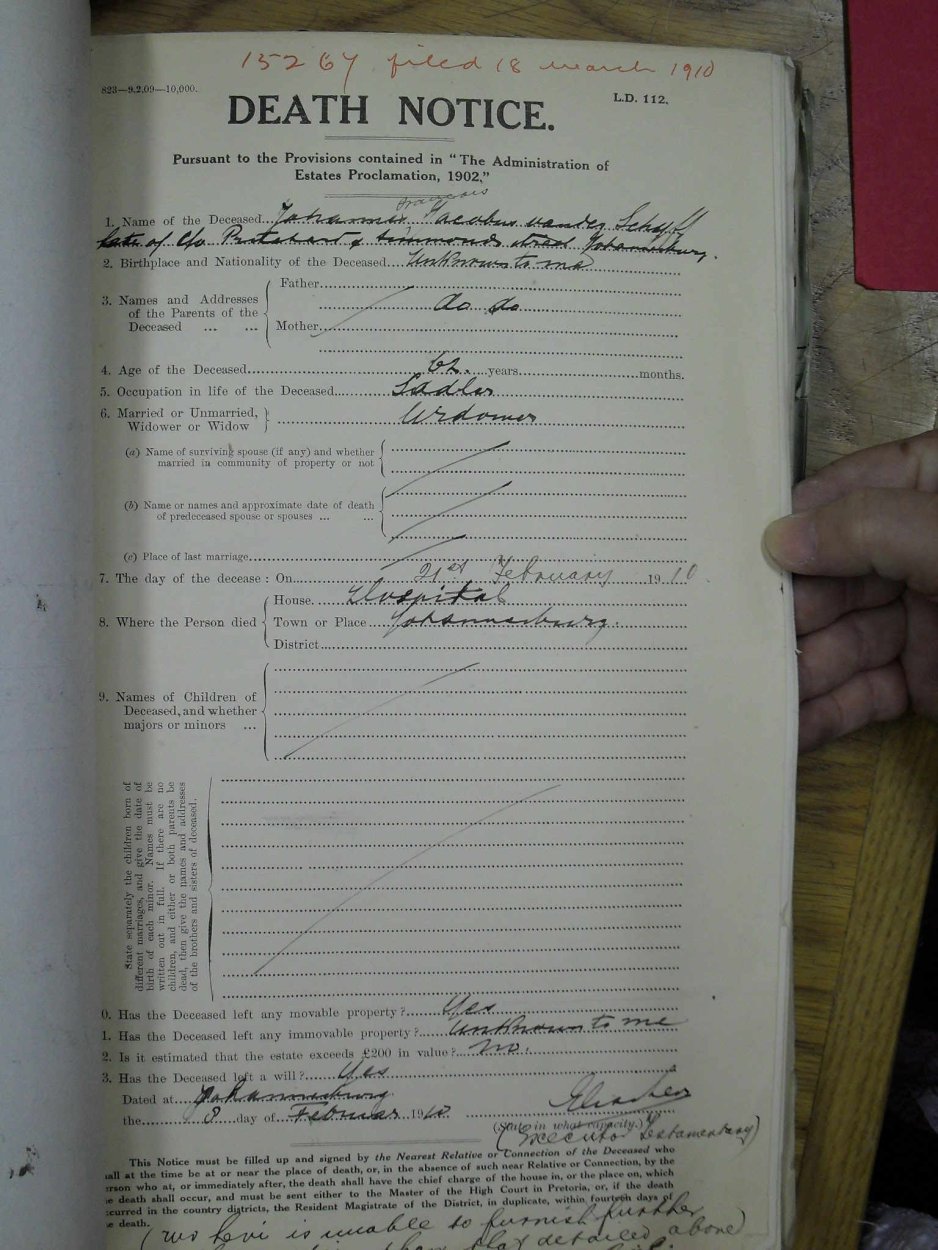 15267 filed 18 march 1910
823—9.2.09—10,000.
L.D. 112.
DEATH NOTICE.
Pursuant to the Provisions contained in "The Administration of
Estates Proclamation, 1902."
Francois
1. Name of the Deceased Johannes Jacobus van der Schyff
late of c/o Pritchard & Simmonds street Johannesburg.
2. Birthplace and Nationality of the Deceased Unknown to me
3. Names and Addresses of the Parents of the Deceased ... ...
Father
do do
Mother
4. Age of the Deceased 62 years months.
5. Occupation in life of the Deceased Sadler
6. Married or Unmarried, Widower or Widow Widower
(a) Name of surviving spouse (if any) and whether
married in community of property or not
(b) Name or names and approximate date of death
of predeceased spouse or spouses ... ...
(c) Place of last marriage
7. The day of the decease: On 21st February 1910
8. Where the Person died
House. Hospital
Town or Place Johannesburg.
District
9. Names of Children of
Deceased, and whether
majors or minors ...
State separately the children born of
different marriages, and give the date of
birth of each minor. Names must be
written out in full. If there are no
children, and either or both parents be
dead, then give the names and addresses
of the brothers and sisters of deceased.
0. Has the Deceased left any movable property? Yes
1. Has the Deceased left any immovable property? Unknown to me
2. Is it estimated that the estate exceeds £200 in value? No.
3. Has the Deceased left a will? Yes
Dated at Johannesburg
the 8 day of Februar 1910
(State in what capacity.)
(Executor Testamentary)
This Notice must be filled up and signed by the Nearest Relative or Connection of the Deceased who
all at the time be at or near the place of death, or, in the absence of such near Relative or Connection, by the
erson who at, or immediately after, the death shall have the chief charge of the house in, or the place on, which
e death shall occur, and must be sent either to the Master of the High Court in Pretoria, or, if the death
curred in the country districts, the Resident Magistrate of the District, in duplicate, within fourteen days of
e death.
Levi is unable to furnish further
than that detailed above)